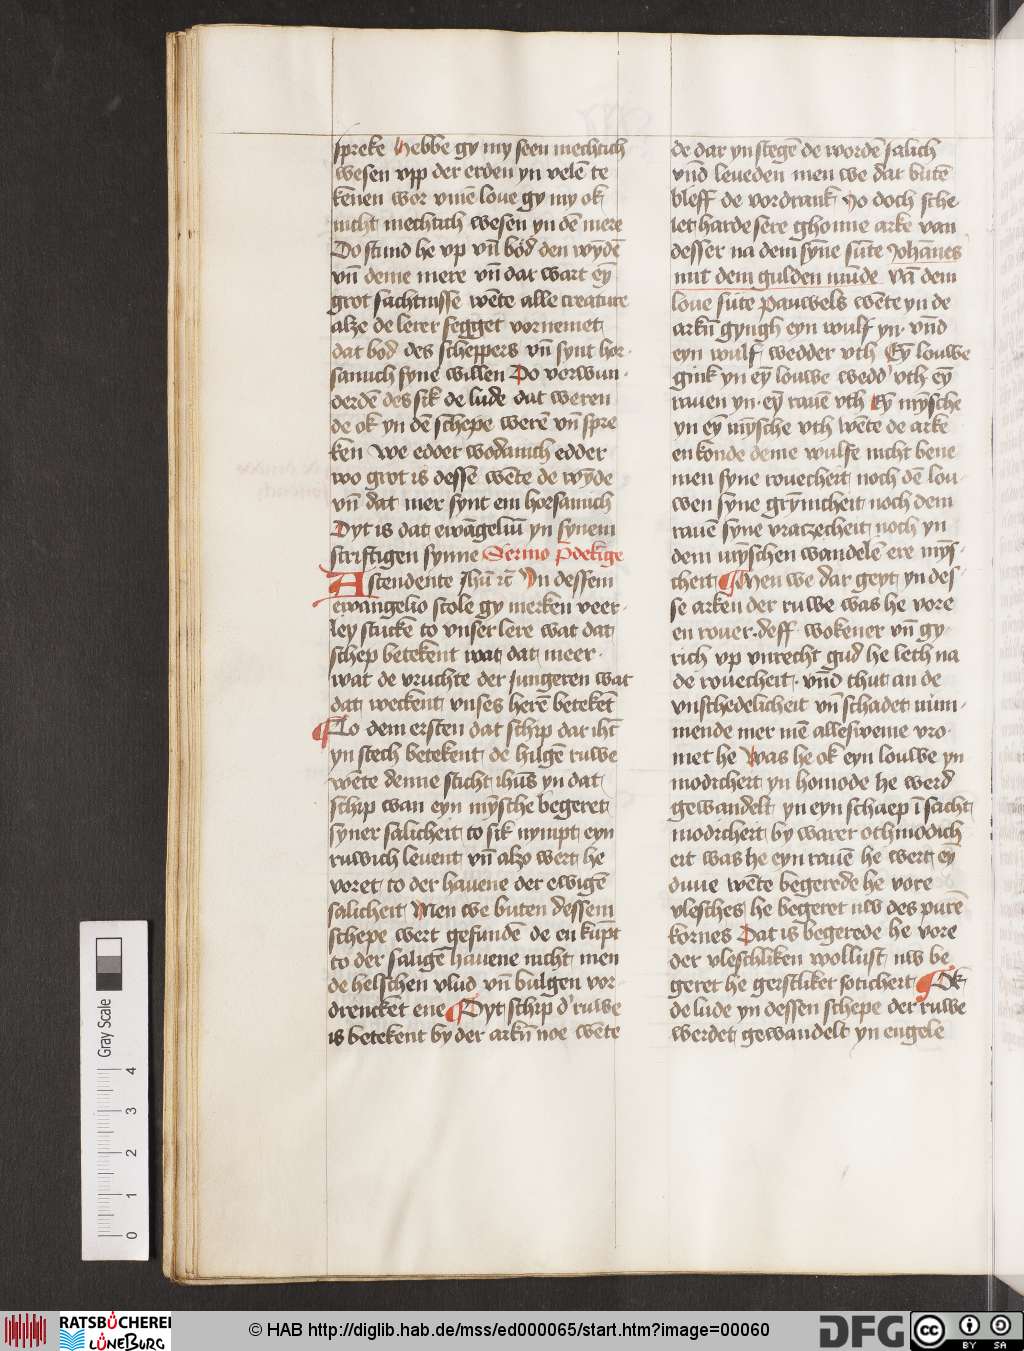 spreke Hebbe gy my seen mechtich
wesen vpp der erden yn velē te
kenen wor vm̄e loue gy my ok
nicht mechtich wesen yn dē mere
Do stund he vp vn̄ bod den wydē
vn̄ deme mere vn̄ dar wart eȳ
grot sachtnisse wēte alle creature
alze de lerer segget vornemet
dat bod des scheppers vn̄ synt hor
samich syne willen Do vorwun
derdē des sik de lude dat weren
de ok yn dē schepe werē vn̄ spre
ken we edder wodanich edder
wo grot is desse wēte de wyde
vn̄ dat mer synt em horsamich
Dyt is dat ewāgeliū yn synem
scriftigen synne Sermo p̄dekige
Ascendente Jhū rc̄ Yn dessem
ewangelio scole gy merken veer
ley stucke to vnser lere wat dat
schep betekent wat dat meer
wat de vruchte der jungeren wat
dat weckent vnses herē betekēt
To dem ersten dat schip dar ihc̄
yn stech betekent de hilgē ruwe
wēte denne sticht ihūs yn dat
schip wan eyn mȳsche begeret
syner salicheit to sik nympt eyn
ruwich levent vn̄ alzo wert he
voret to der hauene der ewigē
salicheit Men we buten dessem
schepe wert gefundē de en kūpt
to der saligē hauene nicht men
de helschen vlud vn̄ bulgen vor
drencket ene Dyt schip d' ruwe
is betekent by der arkn̄ noe wēte
de dar yn stegē de wordē salich
vn̄d leueden men we dar butē
bleff de vordrank No doch sche
let harde sere gho nne arke van
desser na dem sȳne sūte Johānes
mit dem gulden mūde vā dem
loue sūte pauwels wēte yn de
arkn̄ gyngh eyn wulf yn vn̄d
eyn wulf wedder vth Eȳ louwe
gink yn eȳ louwe wedd' vth eȳ
rauen yn eȳ rauē vth Eȳ mȳsche
yn eȳ mȳsche vth wēte de arke
en konde deme wulfe nicht bene
men syne rouecheit noch dē lou
wen syne grȳmicheit noch dem
rauē syne vraczecheit noch yn
dem mȳschen wandelē ere mȳs
cheit Men we dar geyt yn des
se arken der ruwe was he vore
en rouer deff wokener vn̄ gy
rich vp vnrecht gud he leth na
de rouecheit vn̄d thut an de
vnschedelicheit vn̄ schadet nūm
mende mer mē allesweme vro
met he Was he ok eyn louwe yn
modicheit yn homode he werd
gewandelt yn eyn schaep ī sacht
modicheit by warer othmodich
eit was he eyn rauē he wert eȳ
duue wēte begerede he vore
vlesches he begeret nw des purē
kornes Dat is begerede he vore
der vleschliken wollust nw be
geret he gerstliker soticheit Ok
de lude yn dessen schepe der ruwe
werdet gewandelt yn engele
Gray Scale
0 1 2 3 4
RATSBÜCHEREI
LÜNEBURG
© HAB http://diglib.hab.de/mss/ed000065/start.htm?image=00060
DFG
cc
BY SA